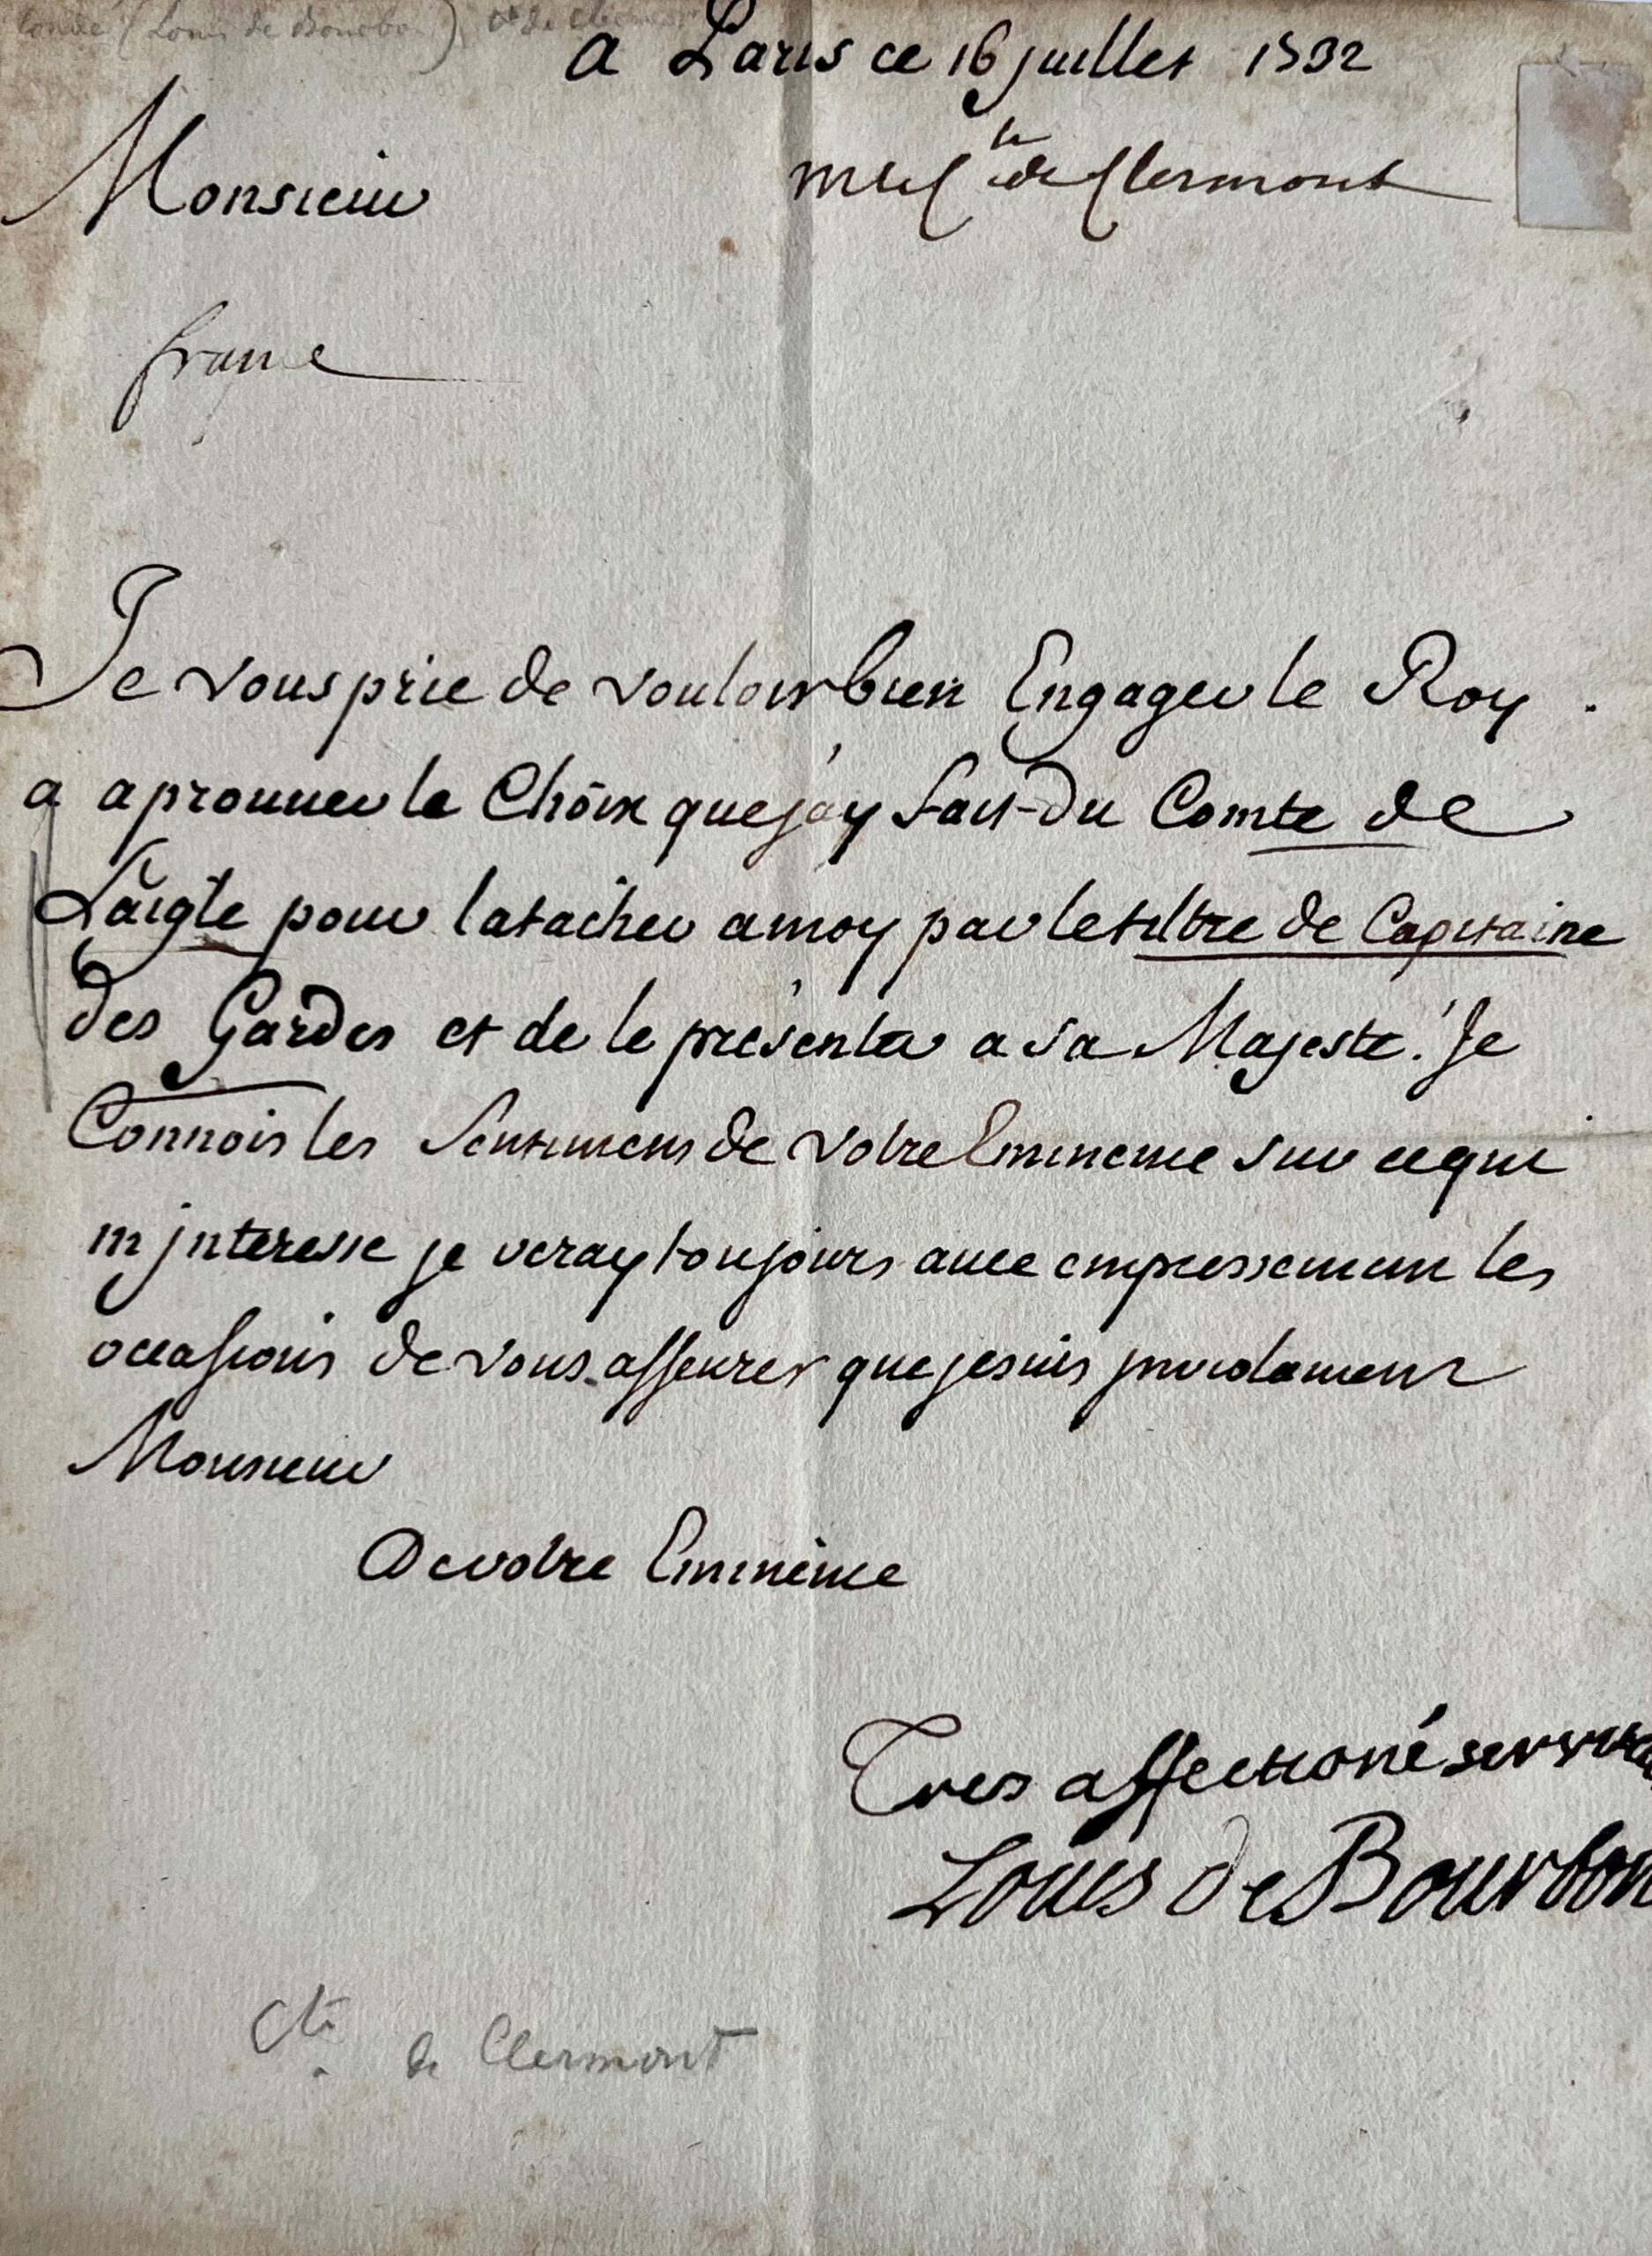 Condé (Louis de Bourbon) Cte de Clermont
a Paris ce 16 juillet 1732
Monsieur
de Clermont
france
Je vous prie de vouloir bien Engager le Roy
a aprouuer le Choix que j'ay fait du Comte de
Laigle pour latacher a moy par le tiltre de Capitaine
des Gardes et de le présenter a sa Majesté. Je
Connois les Sentimens de Votre Eminence sur ce qui
m jnteresse je veray toujours auec empressement les
occasions de vous asseurer que je suis
Monsieur
De votre Eminence
Tres affectioné
Louis de Bourbon
Cte de Clermont